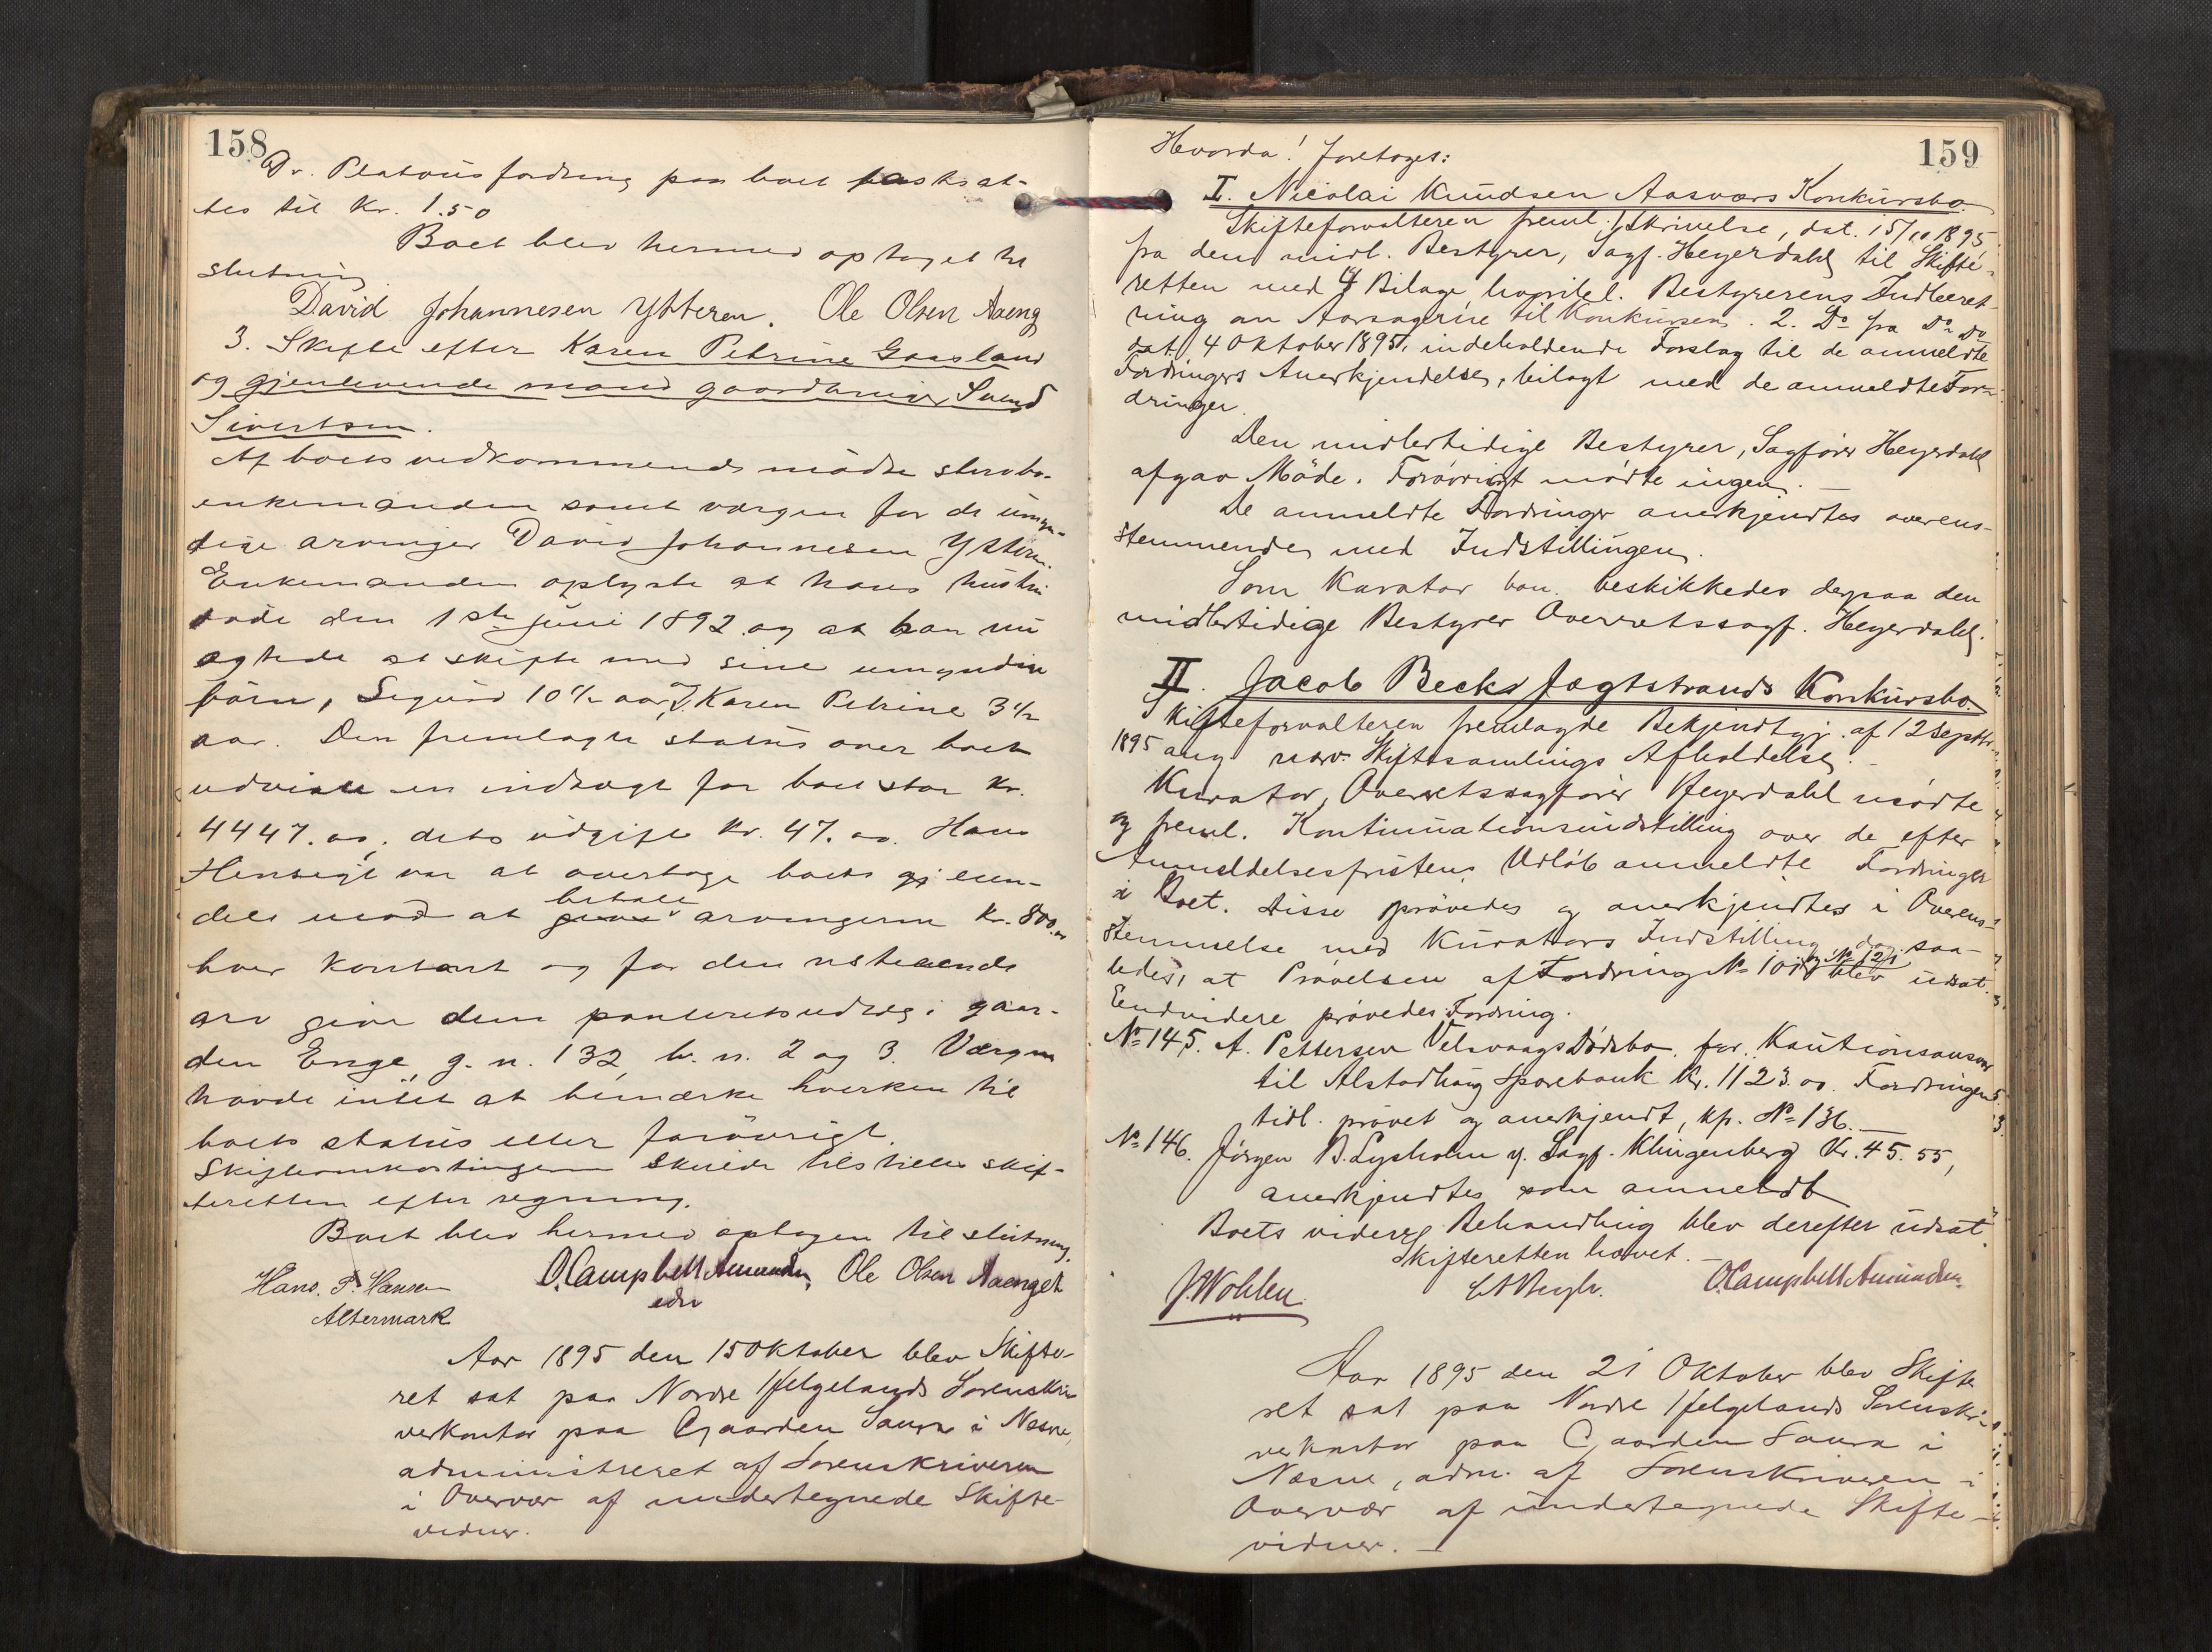 158
Dr. Platous fordring paa boet fastsat-
tes til Kr. 1.50
Boet blev hermed optaget til
slutning
David Johannesen Ytteren. Ole Olsen Aaeng
3. Skifte efter Karen Petrine Gaasland
og gjenlevende mand gaardbruger Svend
Sivertsen.
Af boets vedkommende mødte
enkemanden samt værgen for de umyn-
dige arvinger David Johannesen Yttern.
Enkemanden oplyste at hans hustru
døde den 1ste juni 1892 og at han nu
agtede at skifte med sine umyndige
børn, Sigurd 10 1/2 aar, Karen Petrine 3 1/2
aar. Den fremlagte status over boet
udviste en indtægt for boet stor Kr.
4447.00, dets udgift Kr. 47.00. Hans
Hensigt var at overtage boets gj eien-
dele mod at give betale arvingerne Kr. 800.00
hver kontant og for den resterende
arv give dem panteretsudlæg i gaar-
den Enge, g. n. 132, b. n. 2 og 3. Værgen
havde intet at bemærke hverken til
boets status eller forøvrigt.
Skifteomkostningerne skulde tilstilles skif-
teretten efter regning.
Boet blev hermed optagen til slutning.
Hans. P. Hansen O. Campbell Amundsen Ole Olsen Aaenget
Altermark edsv
Aar 1895 den 15 Oktober blev Skifte-
ret sat paa Nordre Helgelands Sorenskri-
verkontor paa Gaarden Saura i Nesne,
administreret af Sorenskriveren
i Overvær af undertegnede Skifte-
vidner.
159
Hvorda! foretoges:
I. Nicolai Knudsen Aasværs Konkursbo.
Skifteforvalteren freml. 1 Skrivelse, dat. 15/10 1895
fra den midl. Bestyrer, Sagf. Heyerdahl til Skifte-
retten med 4 Bilage hvoribl. Bestyrerens Indberet-
ning om Aarsagerne til Konkursen. 2. Do fra Do Do
dat. 4 Oktober 1895, indeholdende Forslag til de anmeldte
Fordringers Anerkjendelse, bilagt med de anmeldte For-
dringer.
Den midlertidige Bestyrer, Sagfører Heyerdahl
afgav Møde. Forøvrigt mødte ingen. —
De anmeldte Fordringer anerkjendtes overens-
stemmende med Indstillingen.
Som Kurator bon. beskikkedes derpaa den
midlertidige Bestyrer Overretssagf. Heyerdahl.
II. Jacob Becks Jagtstrands Konkursbo.
Skifteforvalteren fremlagde Bekjendtgj. af 12 Septbr
1895 ang nærv. Skiftesamlings Afholdelse. -
Kurator, Overretssagfører Heyerdahl mødte
og freml. Kontinuationsindstilling over de efter
Anmeldelsesfristens Udløb anmeldte Fordringer
i Boet. Disse prøvedes og anerkjendtes i Overens-
stemmelse med Kurators Indstilling, dog saa-
ledes, at Prøvelsen af Fordring No 101 og No 121 blev udsat.
Endvidere prøvedes Fordring.
No 145. A. Pettersen Velsvaags Dødsbo for Kautionsansvar
til Alstadhaug Sparebank Kr. 1123.00. Fordringen
tidl. prøvet og anerkjendt, kfr. No 136. —
No 146. Jørgen B. Lysholm v. Sagf. Klingenberg Kr. 45.55,
anerkjendtes som anmeldt
Boets videre Behandling blev derefter udsat.
Skifteretten hævet. —
O. Campbell Amundsen
Aar 1895 den 21 Oktober blev Skifte
ret sat paa Nordre Helgelands Sorenskri-
verkontor paa Gaarden Saura i
Nesne, adm. af Sorenskriveren i
Overvær af undertegnede Skifte-
vidner. —